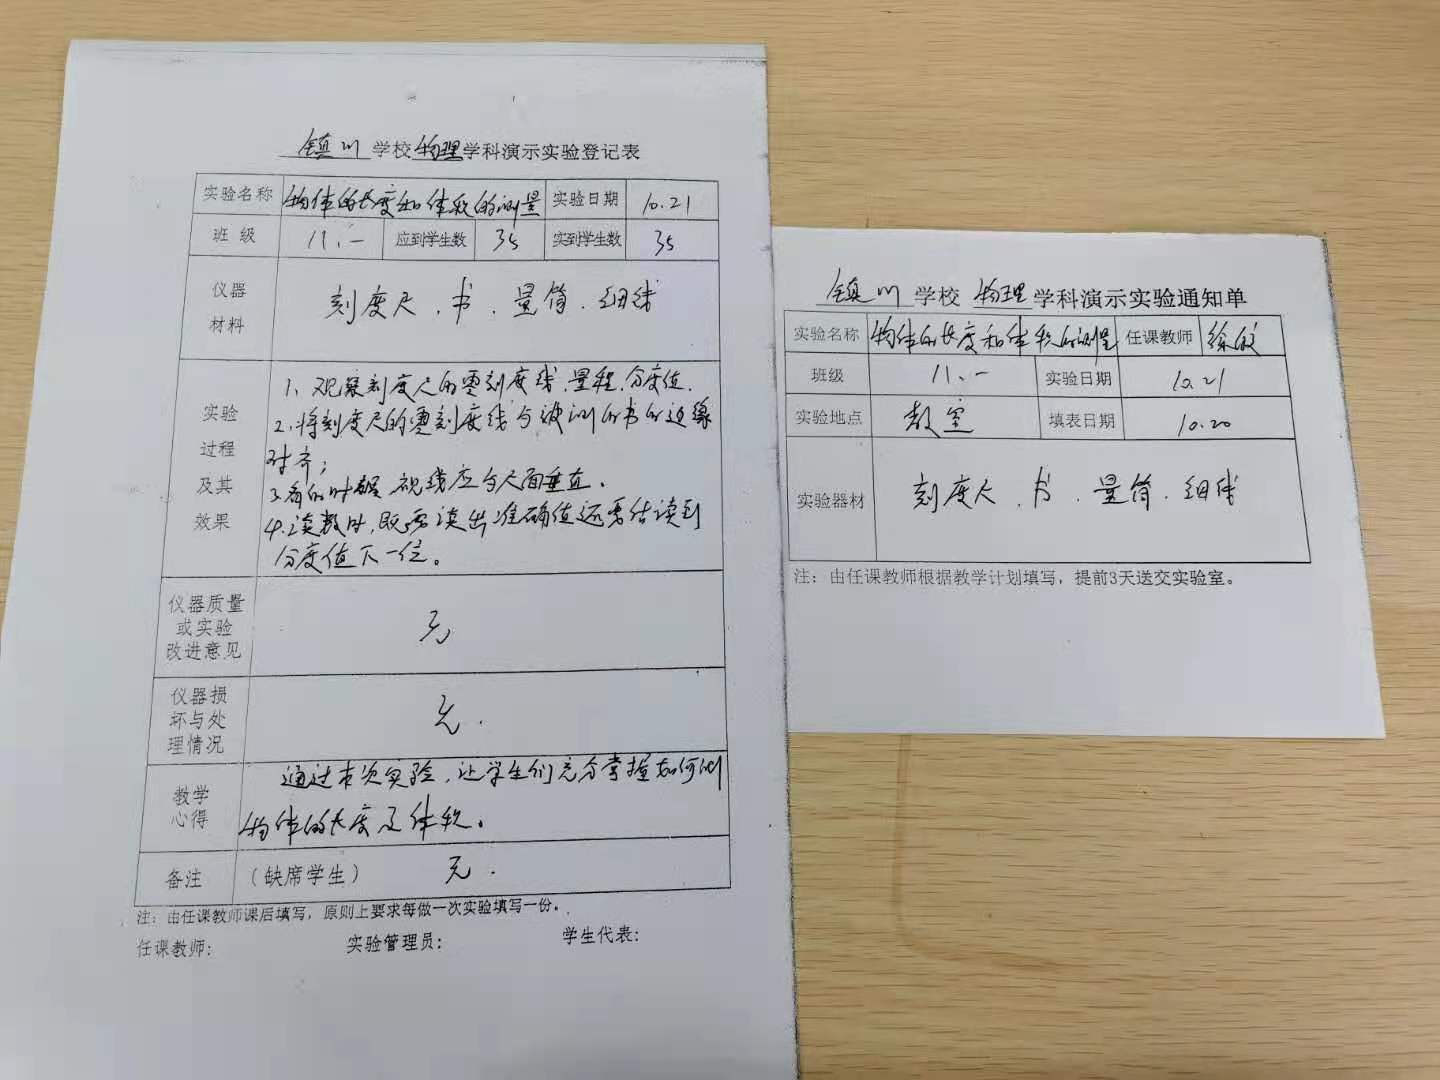 镇川学校物理学科演示实验登记表
实验名称 物体的长度和体积的测量 实验日期 10.21
班级 八.一 应到学生数 35 实到学生数 35
仪器材料 刻度尺、书、量筒、细线
实验过程及其效果
1、观察刻度尺的零刻度线,量程,分度值.
2、将刻度尺的零刻度线与被测的书的边缘
对齐;
3、看的时候 视线应与尺面垂直.
4、读数时,既要读出准确值还要估读到
分度值下一位。
仪器质量或实验改进意见 无
仪器损坏与处理情况 无.
教学心得 通过本次实验,让学生们充分掌握如何测
物体的长度及体积。
备注 (缺席学生) 无.
注:由任课教师课后填写,原则上要求每做一次实验填写一份。
任课教师: 实验管理员: 学生代表:
镇川学校 物理学科演示实验通知单
实验名称 物体的长度和体积的测量 任课教师 徐
班级 八.一 实验日期 10.21
实验地点 教室 填表日期 10.20
实验器材 刻度尺、书、量筒、细线
注:由任课教师根据教学计划填写,提前3天送交实验室。